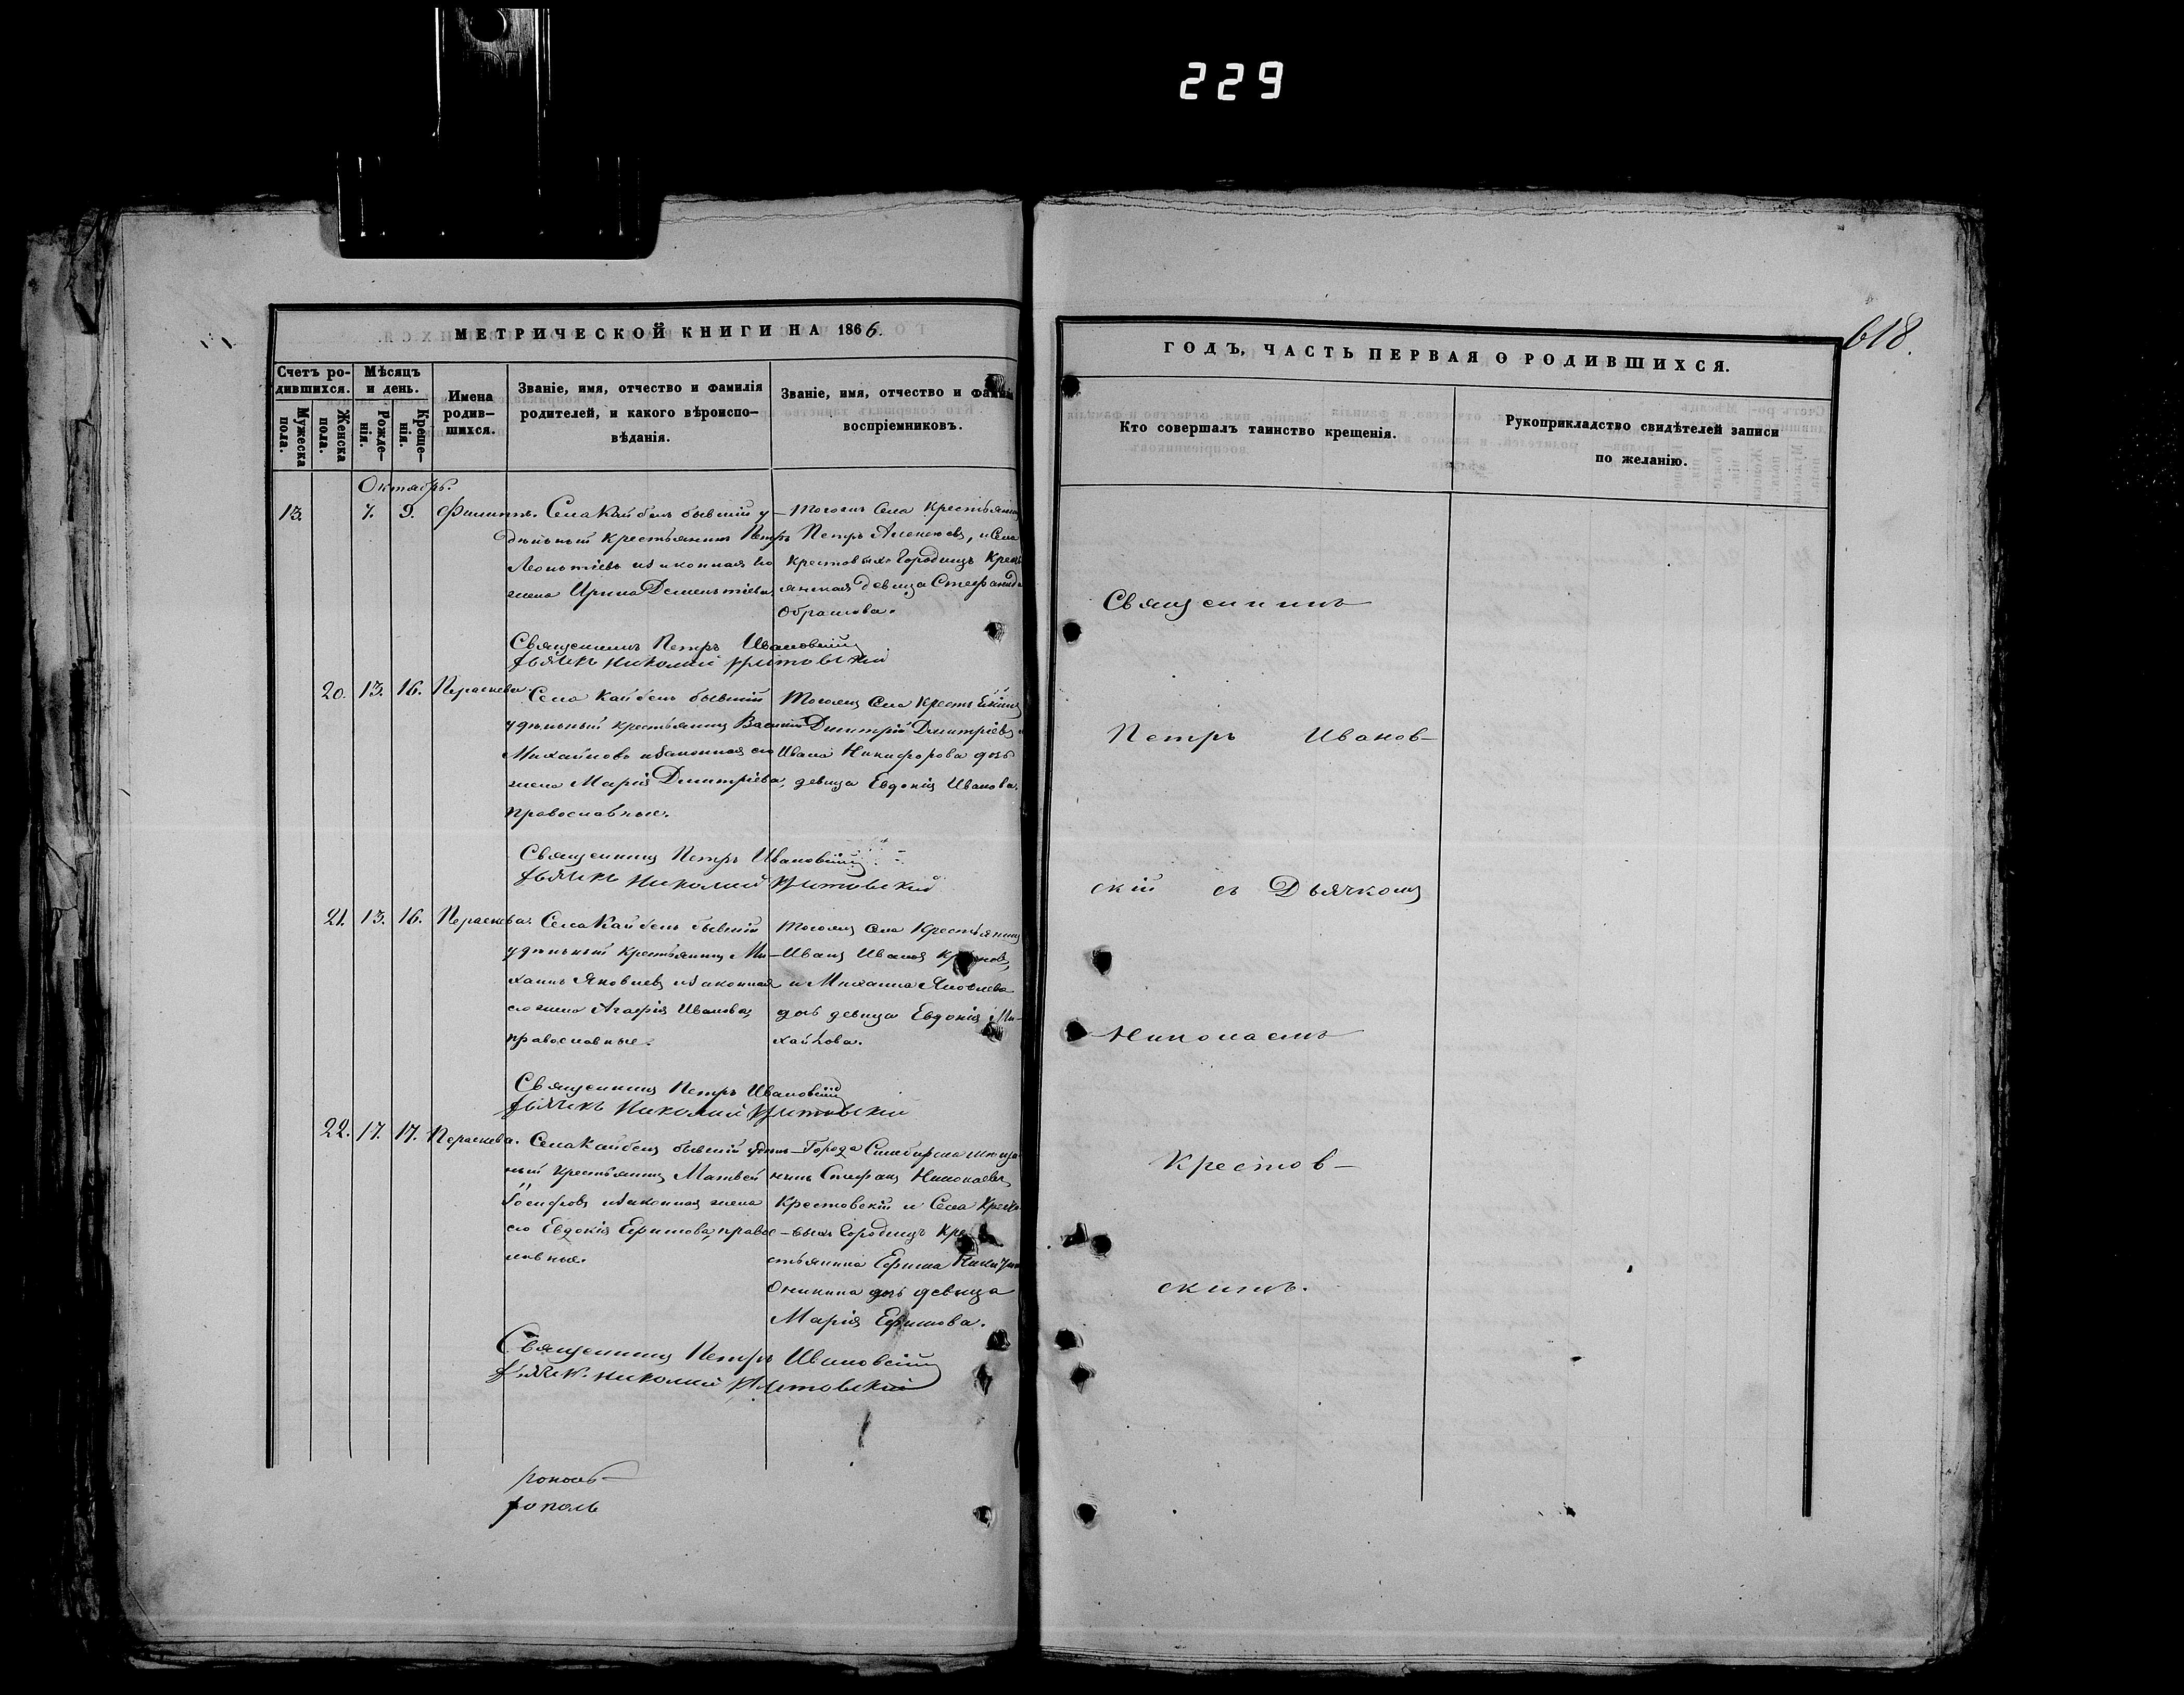 229
МЕТРИЧЕСКОЙ КНИГИ НА 1866.
Счетъ ро-
дившихся.
Мужеска
пола.
Женска
пола.
Мѣсяцъ
и день.
Рожде-
нія.
Креще-
нія.
Имена
родив-
шихся.
Званіе, имя, отчество и фамилія
родителей, и какого вѣроиспо-
вѣданія.
Званіе, имя, отчество и фамилія
воспріемниковъ.
Октябрь.
13. 7. 9. Филиппъ. Села Кайбелъ бывшій у-
дѣльный крестьянинъ Петръ
Леонтіевъ и законная его
жена Ирина Дементіева
Тогожъ села крестьянинъ
Петръ Алексѣевъ, и села
Крестовыхъ Городищъ крестъ
янская девица Стефанида
Священникъ Петръ Ивановскій
Дьячекъ Николай Крестовскій
20. 13. 16. Параскева. Села Кайбелъ бывшій
удѣльный крестьянинъ Василій
Михайловъ и законная его
жена Марія Дмитріева,
православные.
Тогожъ села крестьянинъ
Дмитрій Дмитріевъ и
Ивана Никифорова дочь
девица Евдокія Иванова.
Священникъ Петръ Ивановскій
Дьячекъ Николай Крестовскій
21. 13. 16. Параскева. Села Кайбелъ бывшій
удѣльный крестьянинъ Ми-
хаилъ Яковлевъ и законная
его жена Агафія Иванова,
православные.
Тогожъ села крестьянинъ
Иванъ Ивановъ
и Михаила Яковлева
дочь девица Евдокія Ми-
хайлова.
Священникъ Петръ Ивановскій
Дьячекъ Николай Крестовскій
22. 17. 17. Параскева. Села Кайбелъ бывшій удѣль-
ный крестьянинъ Матвей
Іосифовъ и законная жена
его Евдокія Ефимова, правос-
лавные.
Города Симбирска мѣща
нинъ Стефанъ Николаевъ
Крестовскій и Села Кресто
-выхъ Городищъ Кре
стьянина Ефима
дочь девица
Марія Ефимова.
Священникъ Петръ Ивановскій
Дьячекъ Николай Крестовскій
ГОДЪ, ЧАСТЬ ПЕРВАЯ О РОДИВШИХСЯ.
618.
Кто совершалъ таинство крещенія.
Рукоприкладство свидѣтелей записи
по желанію.
Священникъ
Петръ Иванов-
скій съ Дьячкомъ
Николаемъ
Крестов-
скимъ.